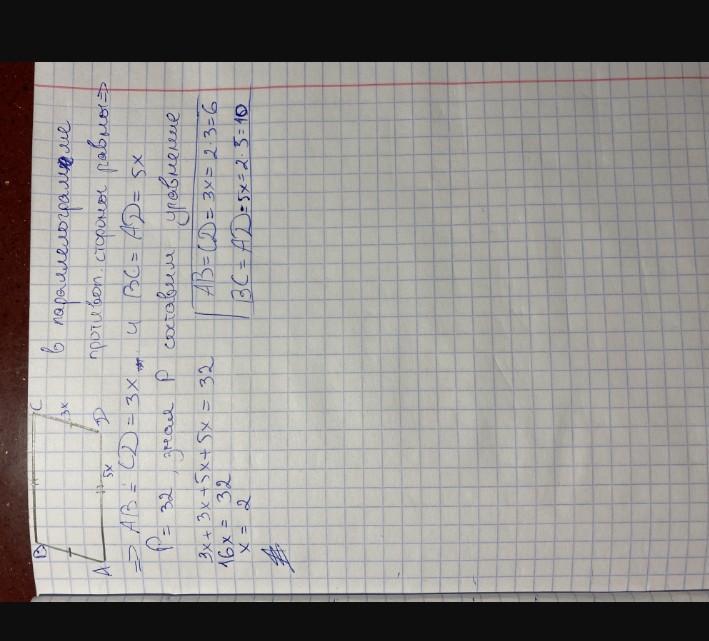 B C
3x
A 5x D
в параллелограмме
противоп. стороны равны =>
=> AB = CD = 3x и BC = AD = 5x
P = 32, зная P составим уравнение
3x + 3x + 5x + 5x = 32
16x = 32
x = 2
AB = CD = 3x = 2·3=6
BC = AD = 5x = 2·5=10